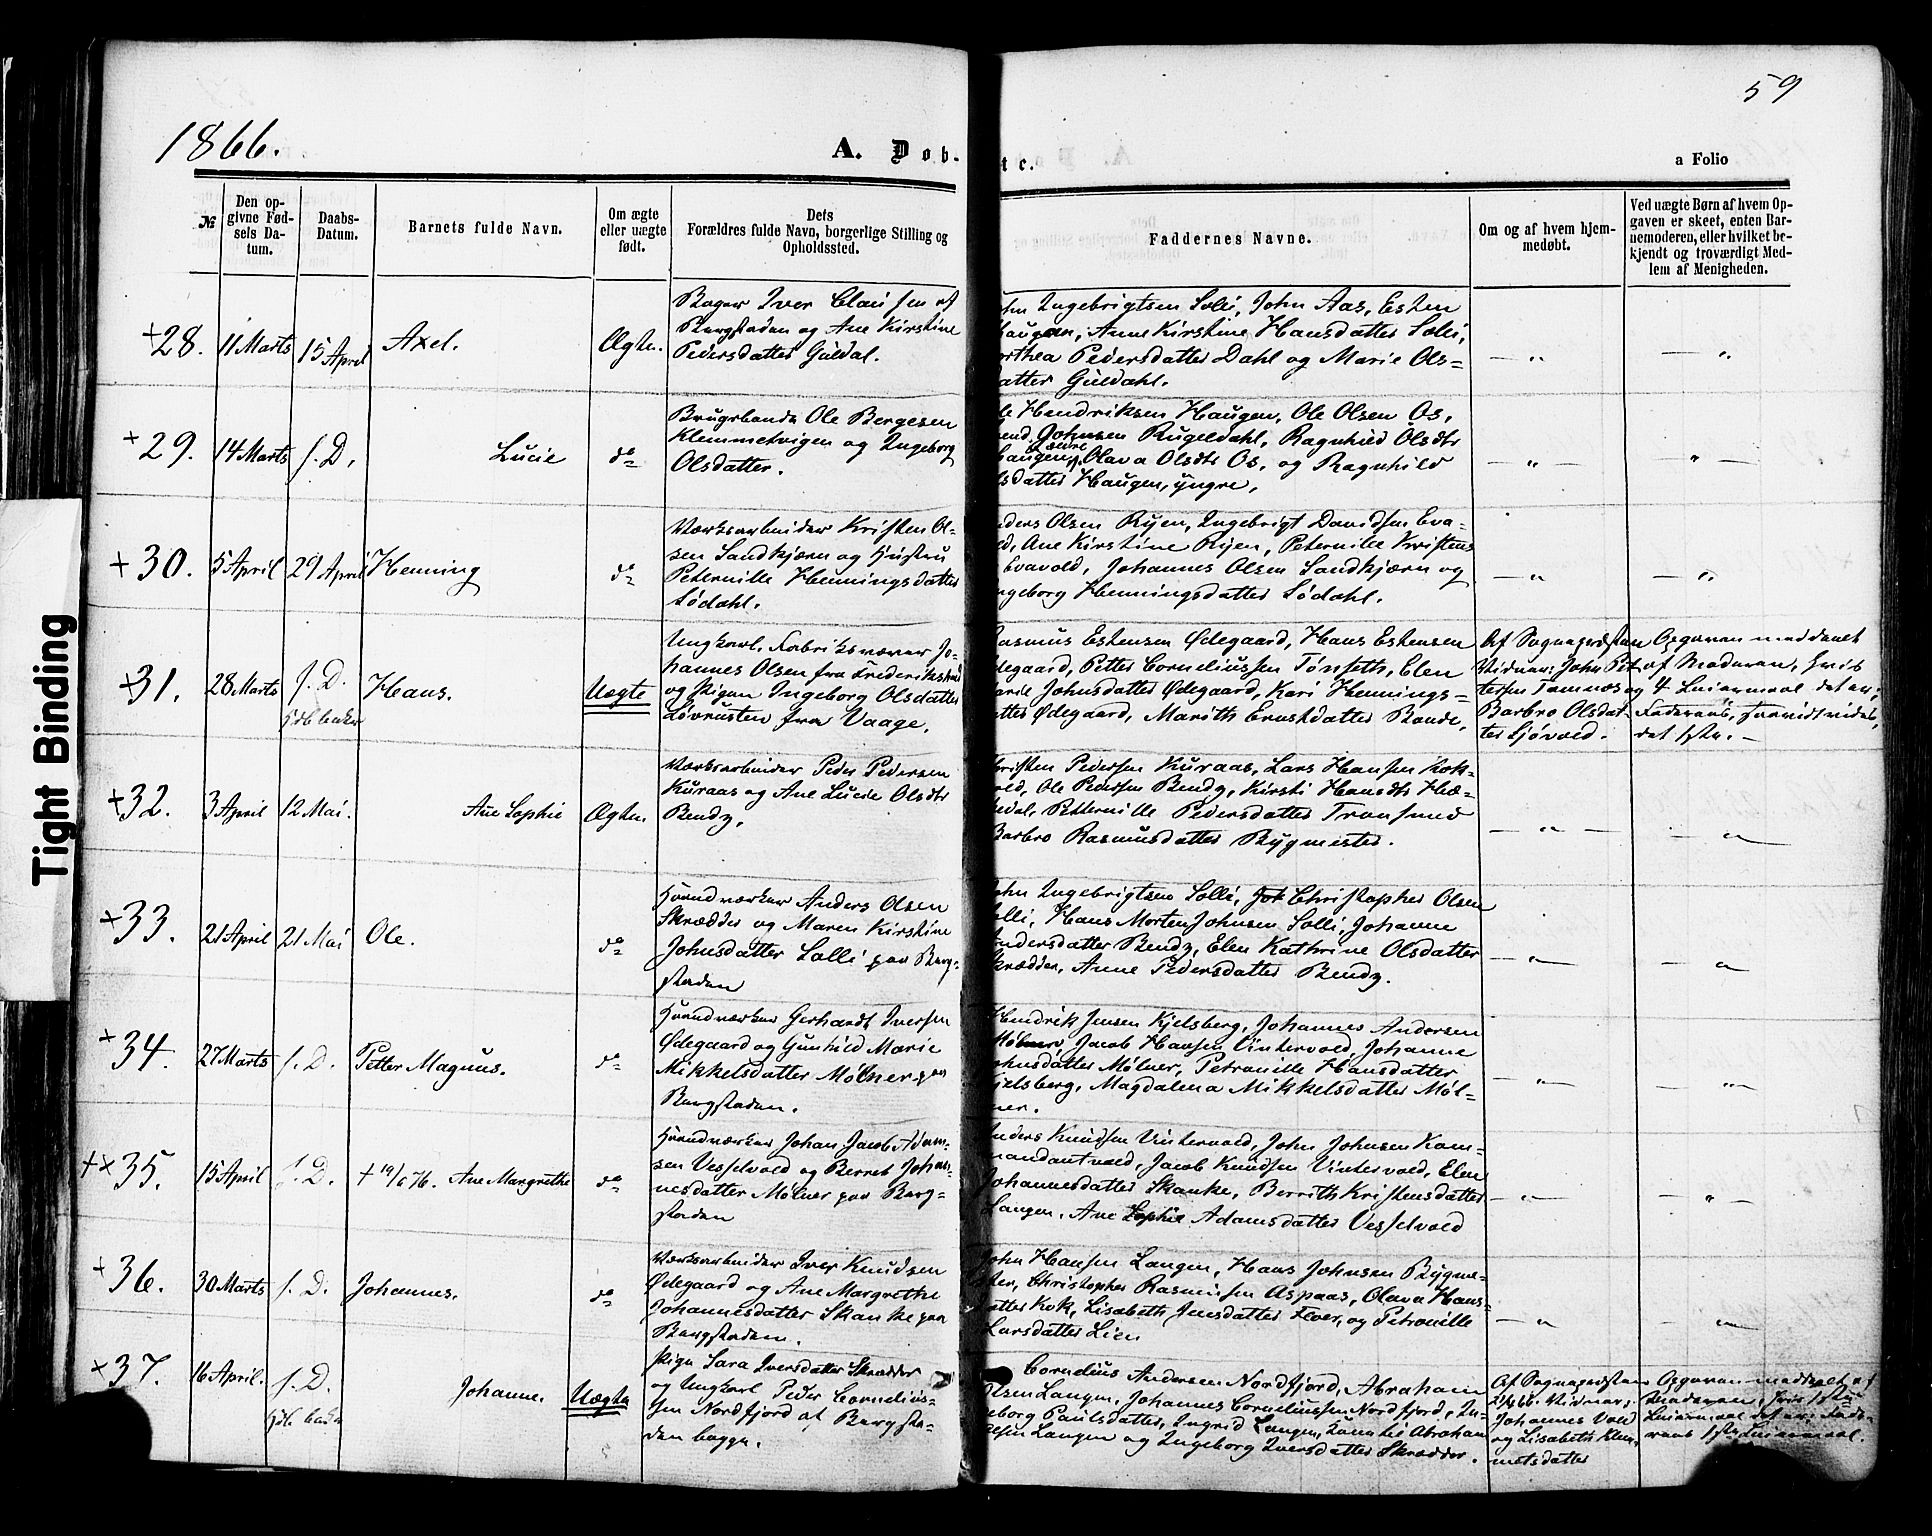 59
1866.
A. Døb-
te.
a Folio
№
Den op-
givne Fød-
sels Da-
tum.
Daabs-
Datum.
Barnets fulde Navn.
Om ægte
eller uægte
født.
Dets
Forældres fulde Navn, borgerlige Stilling og
Opholdssted.
Faddernes Navne.
Om og af hvem hjem-
medøbt.
Ved uægte Børn af hvem Op-
gaven er skeet, enten Bar-
nemoderen, eller hvilket be-
kjendt og troværdigt Med-
lem af Menigheden.
+28. 11 Marts 15 April Axel. Ægte.
Bager Iver Clausen af
Bergstaden og Ane Kirstine
Pedersdatter Guldal.
Ingebrigtsen Solli, John Aas, Esten
Haugen, Anne Kirstine Hansdatter Solli,
Pedersdatter Dahl og Marie Ols-
datter Guldahl.
+29. 14 Marts s. D. Lucie do
Brugsbonde Ole Bergesen
Klemmetvigen og Ingeborg
Olsdatter.
Hendriksen Haugen, Ole Olsen Os,
Johnsen Rugeldahl, Ragnhild Olsdtr
Haugen, Olava Olsdtr Os, og Ragnhild
Haugen, yngre,
+30. 5 April 29 April Henning do
Værksarbeider Kristen Ol-
sen Sandkjærn og Hustru
Peternille Henningsdatter
Sødahl.
Olsen Ryen, Ingebrigt Davidsen Eva-
Ane Kirstine Ryen, Peternille Kristens
Evavold, Johannes Olsen Sandkjærn og
Ingeborg Henningsdatter Sødahl.
+31. 28 Marts s. D. Hans. Uægte
Ungkarl, Fabriksvæver Jo-
hannes Olsen fra Frederikstad
og Pigen Ingeborg Olsdatter
Løvrusten fra Vaage.
Rasmus Estensen Ødegaard, Hans Estensen
Ødegaard, Petter Corneliussen Tønseth, Elen
Johnsdatter Ødegaard, Kari Hennings-
Ødegaard, Marith Erustdatter Bonde.
Af Sognepræsten
Vidner: John Pet-
tersen Tamnæs og
Barbro Olsdat-
ter Sjøvold.
Opgaven meddelt
af Moderen, hvis
4 Leiermaal det er;
Faderens, saavidt vides,
det 1ste.
+32. 3 April 12 Mai. Ane Sophie Ægte.
Værksarbeider Peder Pedersen
Kuraas og Ane Lucie Olsdtr
Bendz.
Kristen Pedersen Kuraas, Lars Hansen Kok-
Ole Pedersen Bendz, Kirsti Hansdtr He-
dal, Petternille Pedersdatter Tronsmed
Barbro Rasmusdatter Bygmester.
+33. 21 April 21 Mai Ole. do
Haandværker Anders Olsen
Skrædder og Maren Kirstine
Johnsdatter Solli paa Berg-
staden
John Ingebrigtsen Solli, Christopher Olsen
Solli, Hans Morten Johnsen Solli, Johanne
Andersdatter Bendz, Elen Kathrine Olsdatter
Skrædder, Anne Pedersdatter Bendz.
+34. 27 Marts s. D. Petter Magnus. do
Haandværker Gerhardt Iversen
Ødegaard og Gunhild Marie
Mikkelsdatter Mølner paa
Bergstaden.
Hendrik Jensen Kjelsberg, Johannes Andersen
Mølner, Jacob Hansen Vintervold, Johanne
Johnsdatter Mølner, Petronille Hansdatter
Kjelsberg, Magdalena Mikkelsdatter Møl-
ner.
+×35. 15 April s. D. + 19/6 76. Ane Margrethe do
Haandværker Johan Jacob Adam-
sen Vesselvold og Berret Johan-
nesdatter Mølner paa Berg-
staden
Anders Knudsen Vintervold, John Johnsen Kom-
mandantvold, Jacob Knudsen Vintervold, Elen
Johannesdatter Skanke, Berrith Kristensdatter
Langen, Ane Sophie Adamsdatter Vesselvold
+36. 30 Marts s. D. Johannes. do
Værksarbeider Iver Knudsen
Ødegaard og Ane Margrethe
Johannesdatter Skanke paa
Bergstaden.
John Hansen Langen, Hans Johnsen Bygme-
ster, Christopher Rasmusen Aspaas, Olava Hans-
datter Kok, Lisabeth Jensdatter Fever, og Petronille
Larsdatter Lien
+37. 16 April. s. D. Johanne. Uægte
Pige Sara Iversdatter Skrædder
og Ungkarl Peder Cornelius-
sen Nordfjord af Bergsta-
den begge.
Cornelius Andersen Nordfjord, Abraham
Olsen Langen, Johannes Corneliussen Nordfjord, In-
geborg Paulsdatter, Ingrid Langen, Abraham
sen Langen og Ingeborg Iversdatter Skrædder.
Af Sognepræsten
Vidner:
Johannes Vold
og Lisabeth Klem-
metsdatter
Opgaven meddelt af
Moderen, hvis 1ste
Leiermaal det er; Fade-
rens 1ste Leiermaal.
Tight Binding